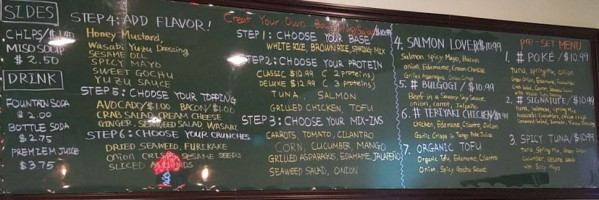 SIDES
CHIPS/$1.40
MISO SOUP
$2.50
DRINK
FOUNTAIN SODA
$2.00
BOTTLE SODA
$2.75
PREMIUM JUICE
$3.75
STEP 4: ADD FLAVOR!
Honey Mustard,
Wasabi Yuzu Dressing
SESAME OIL
SPICY MAYO
SWEET GOCHU
YUZU SAUCE
STEP 5: CHOOSE YOUR TOPPING
AVOCADO/$1.00 BACON/$1.00
CRAB SALAD CREAM CHEESE
GINGER, SEAWEED SALAD WASABI
STEP 6: CHOOSE YOUR CRUNCHIES
DRIED SEAWEED, FURIKAKE
ONION CRISPS SESAME SEEDS
SLICED ALMONDS
Create Your Own
STEP 1: CHOOSE YOUR BASE
WHITE RICE, BROWN RICE, SPRING MIX
STEP 2: CHOOSE YOUR PROTEIN
CLASSIC $10.99 (2 PROTEINS)
DELUXE $12.99 (3 PROTEINS)
TUNA, SALMON
GRILLED CHICKEN, TOFU
STEP 3: CHOOSE YOUR MIX-INS
CARROTS, TOMATO, CILANTRO
CORN, CUCUMBER, MANGO
GRILLED ASPARAGUS, EDAMAME, JALAPEÑO
SEAWEED SALAD, ONION
4. SALMON LOVER/$10.99
Salmon, Spicy Mayo,
onion, Edamame, Cream Cheese
Grilled Asparagus, Onion Crisps
5. # BULGOGI / $10.99
Beef in a Teriyaki Soy Sauce,
onion, carrot,
6. # TERIYAKI CHICKEN/$10.99
Chicken, Edamame, Cilantro, Onion
Garlic Crisps
7. ORGANIC TOFU
Organic Tofu, Edamame, Cilantro
Onion, Spicy Gochu Sauce
PRE-SET MENU
1. # POKÉ / $10.99
Tuna, Spring Mix, Onion
2. # SIGNATURE / $10.99
Tuna, Salmon,
3. SPICY TUNA/$10.99
Tuna, Spring Mix, Green Onion
Cucumber, Sesame Seeds
with Spicy Mayo